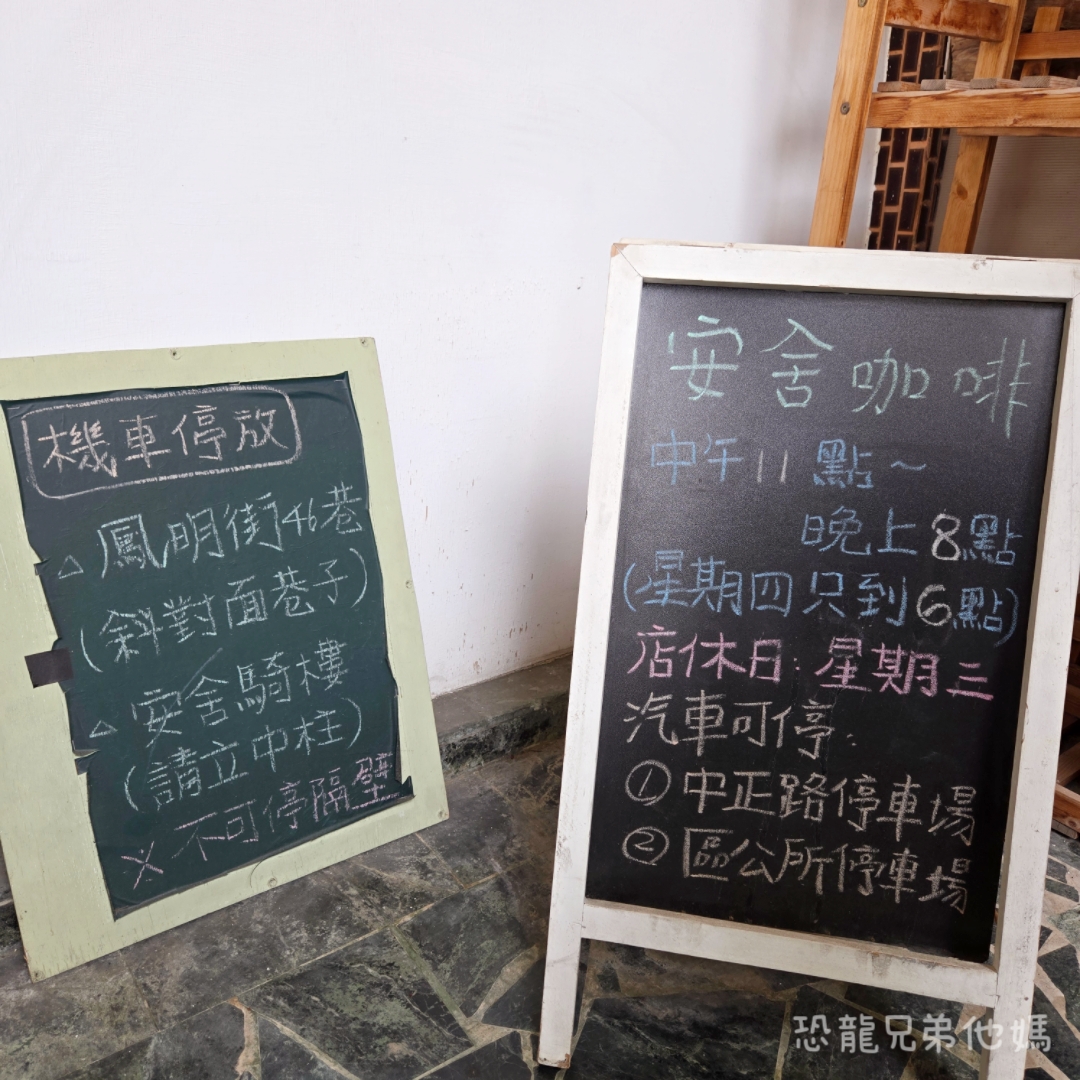 機車停放
△ 鳳明街46巷
(斜對面巷子)
△ 安舍騎樓
(請立中柱)
X 不可停隔壁
安舍咖啡
中午11點~
晚上8點
(星期四只到6點)
店休日:星期三
汽車可停:
① 中正路停車場
② 區公所停車場
恐龍兄弟他媽